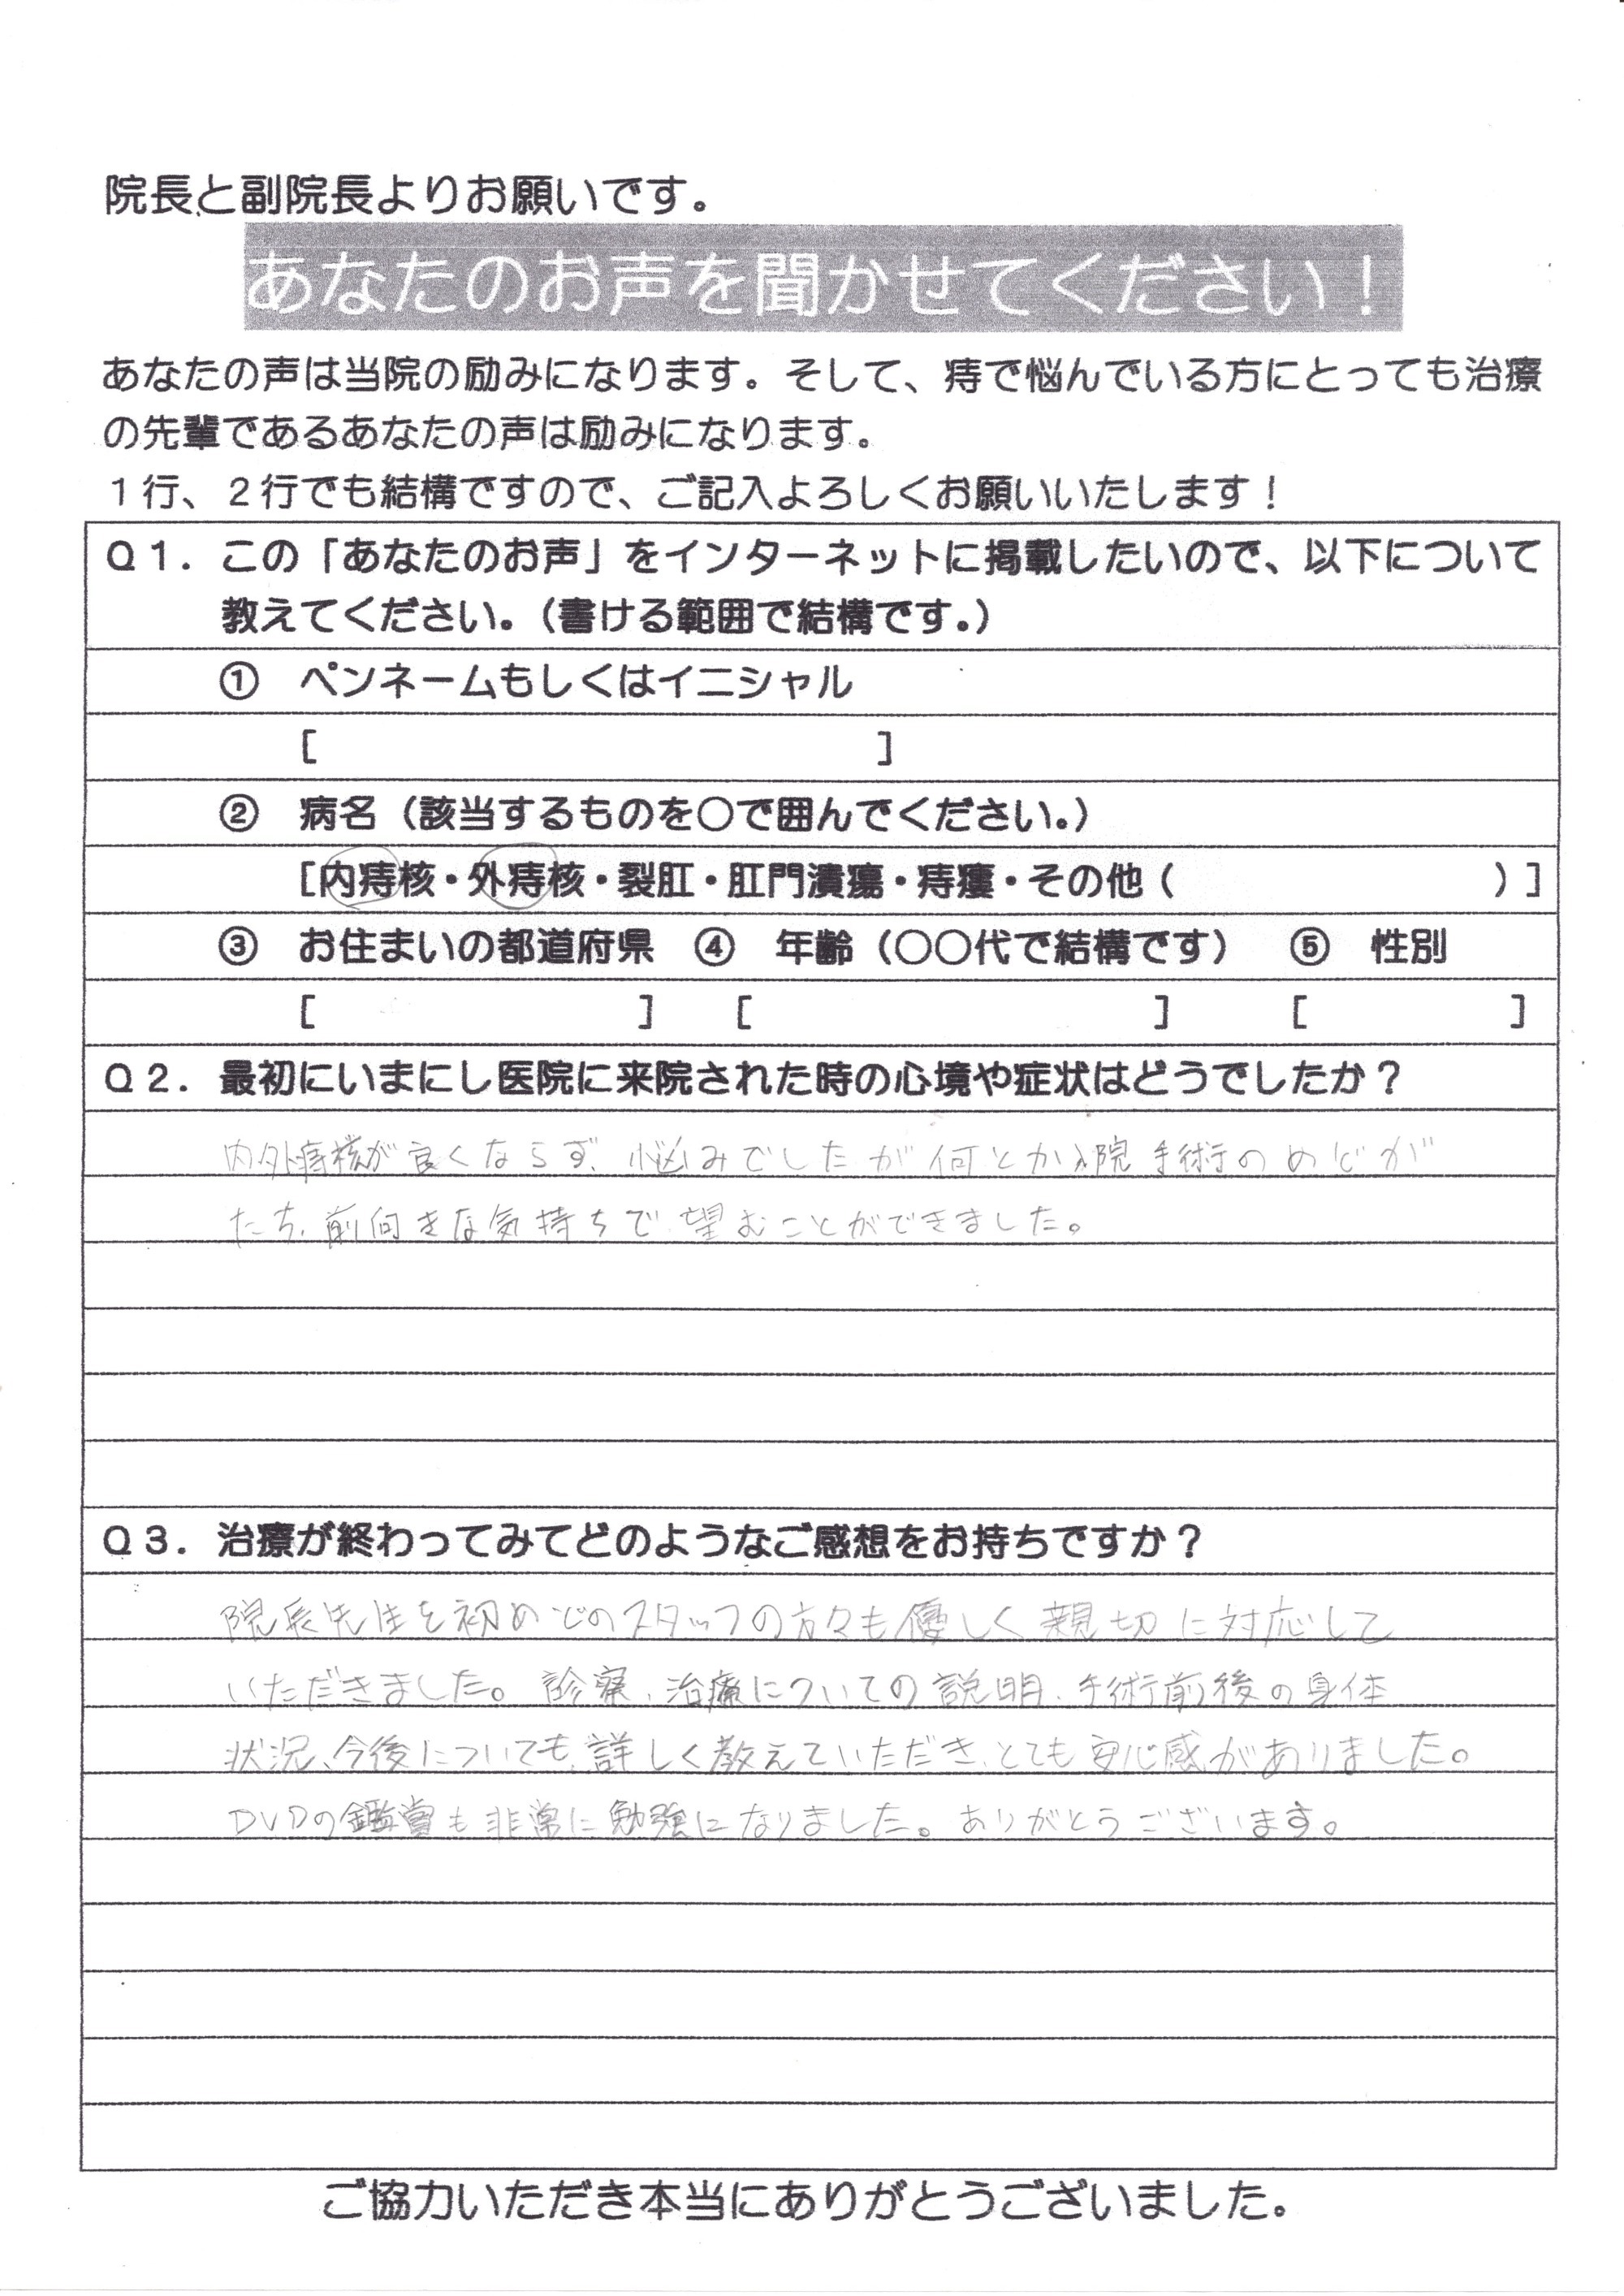 院長と副院長よりお願いです。
あなたのお声を聞かせてください！
あなたの声は当院の励みになります。そして、痔で悩んでいる方にとっても治療
の先輩であるあなたの声は励みになります。
１行、２行でも結構ですので、ご記入よろしくお願いいたします！
Ｑ１．この「あなたのお声」をインターネットに掲載したいので、以下について
教えてください。（書ける範囲で結構です。）
① ペンネームもしくはイニシャル
[ ]
② 病名（該当するものを○で囲んでください。）
[内痔核・外痔核・裂肛・肛門潰瘍・痔瘻・その他（ ）]
③ お住まいの都道府県 ④ 年齢（○○代で結構です） ⑤ 性別
[ ] [ ] [ ]
Ｑ２．最初にいまにし医院に来院された時の心境や症状はどうでしたか？
内外痔核が良くならず、悩みでしたが何とか入院手術のめどが
たち、前向きな気持ちで望むことができました。
Ｑ３．治療が終わってみてどのようなご感想をお持ちですか？
院長先生を初めどのスタッフの方々も優しく親切に対応して
いただきました。診察、治療についての説明、手術前後の身体
状況、今後についても、詳しく教えていただき、とても安心感がありました。
DVDの鑑賞も非常に勉強になりました。ありがとうございます。
ご協力いただき本当にありがとうございました。